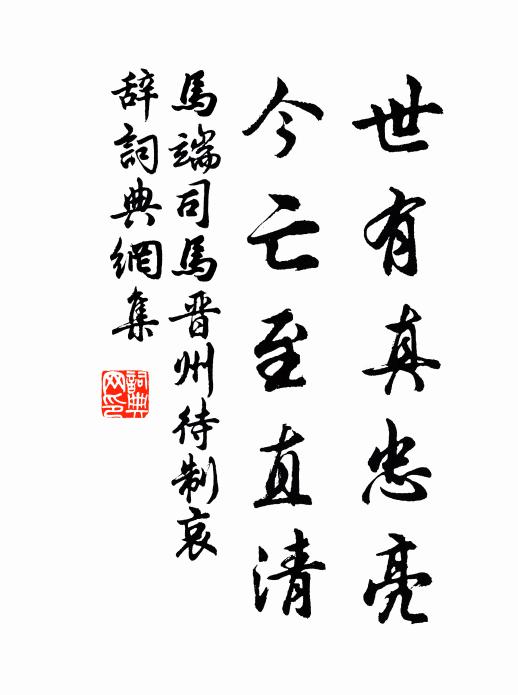 世有真忠亮
今亡至直清
馬端司馬晋州待制哀
辞詞典網集
詞典
网印